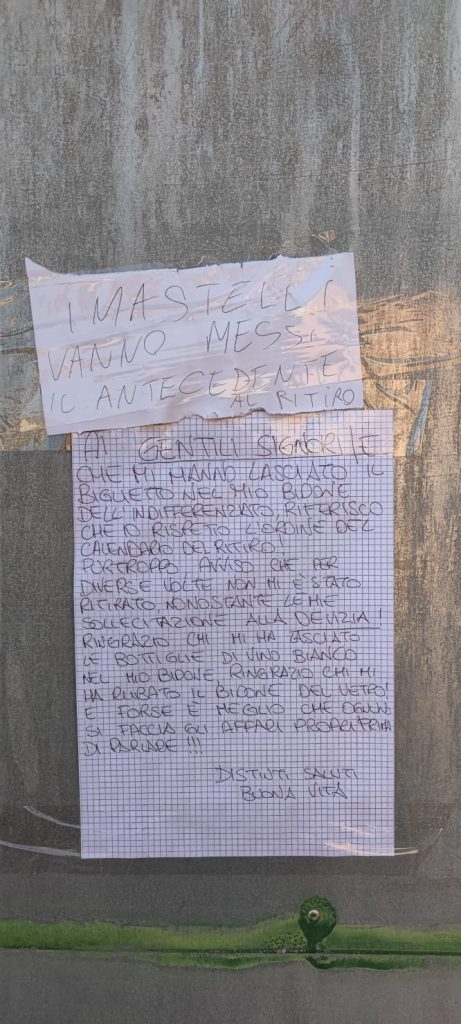 I MASTELLI
VANNO MESSI
IL ANTECEDENTE
AL RITIRO
AI GENTILI SIGNORI/E
CHE MI HANNO LASCIATO IL
BIGLIETTO NEL MIO BIDONE
DELL'INDIFFERENZIATO, RIFERISCO
CHE IO RISPETO L'ORDINE DEL
CALENDARIO DEL RITIRO!
PORTROPPO AVVISO CHE PER
DIVERSE VOLTE NON MI È STATO
RITIRATO NONOSTANTE LE MIE
SOLLECITAZIONE ALLA DEVIZIA!
RINGRAZIO CHI MI HA LASCIATO
LE BOTTIGLIE DI VINO BIANCO
NEL MIO BIDONE RINGRAZIO CHI MI
HA RUBATO IL BIDONE DEL VETRO!
E FORSE È MEGLIO CHE OGNUNO
SI FACCIA GLI AFFARI PROPRI PRIMA
DI PARLARE !!!
DISTINTI SALUTI
BUONA VITA